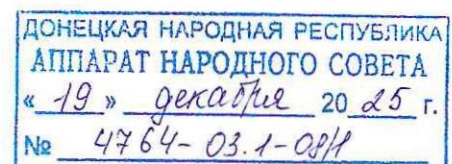 ДОНЕЦКАЯ НАРОДНАЯ РЕСПУБЛИКА
АППАРАТ НАРОДНОГО СОВЕТА
« 19 » декабря 20 25 г.
№ 4764-03.1-08/1